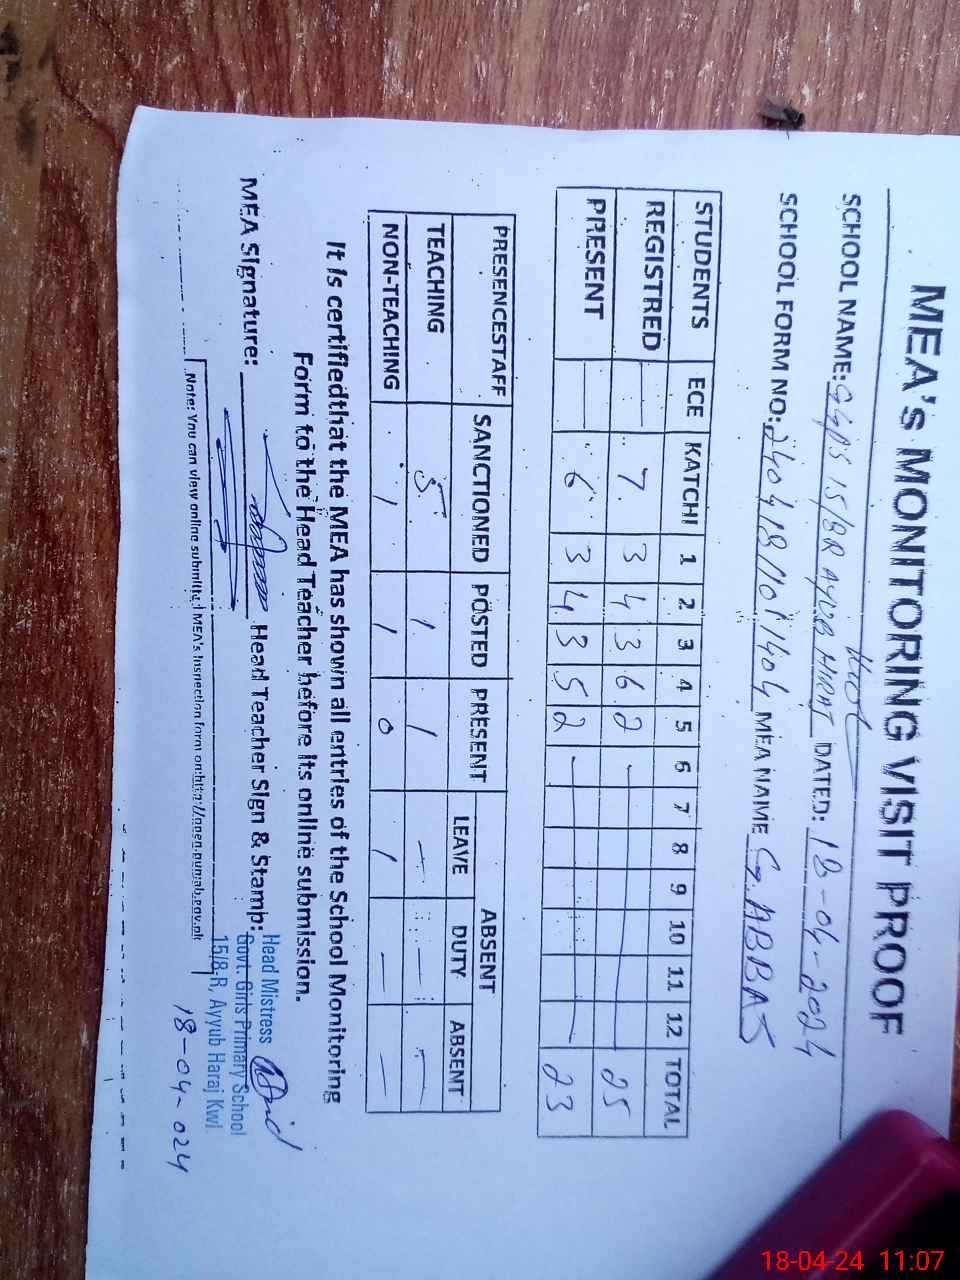 MEA'S MONITORING VISIT PROOF
SCHOOL NAME: GGPS 15/8R AYUB HIRAT DATED: 18-04-2024
SCHOOL FORM NO: MEA NAME G. ABBAS
STUDENTS ECE KATCHI 1 2 3 4 5 6 7 8 9 10 11 12 TOTAL
REGISTRED — 7 3 4 3 6 2 — 25
PRESENT — 6 3 4 3 5 2 — 23
PRESENCESTAFF SANCTIONED POSTED PRESENT ABSENT
LEAVE DUTY ABSENT
TEACHING 5 1 1 — — —
NON-TEACHING 1 1 0 1 — —
It is certifiedthat the MEA has shown all entries of the School Monitoring
Form to the Head Teacher before its online submission.
MEA Signature: Head Teacher Sign & Stamp:
Head Mistress
Govt. Girls Primary School
15/8-R, Ayyub Haraj Kwl
18-04-024
Note: You can view online submitted MEA's Inspection form on:http://open.punjab.gov.pk
18-04-24 11:07